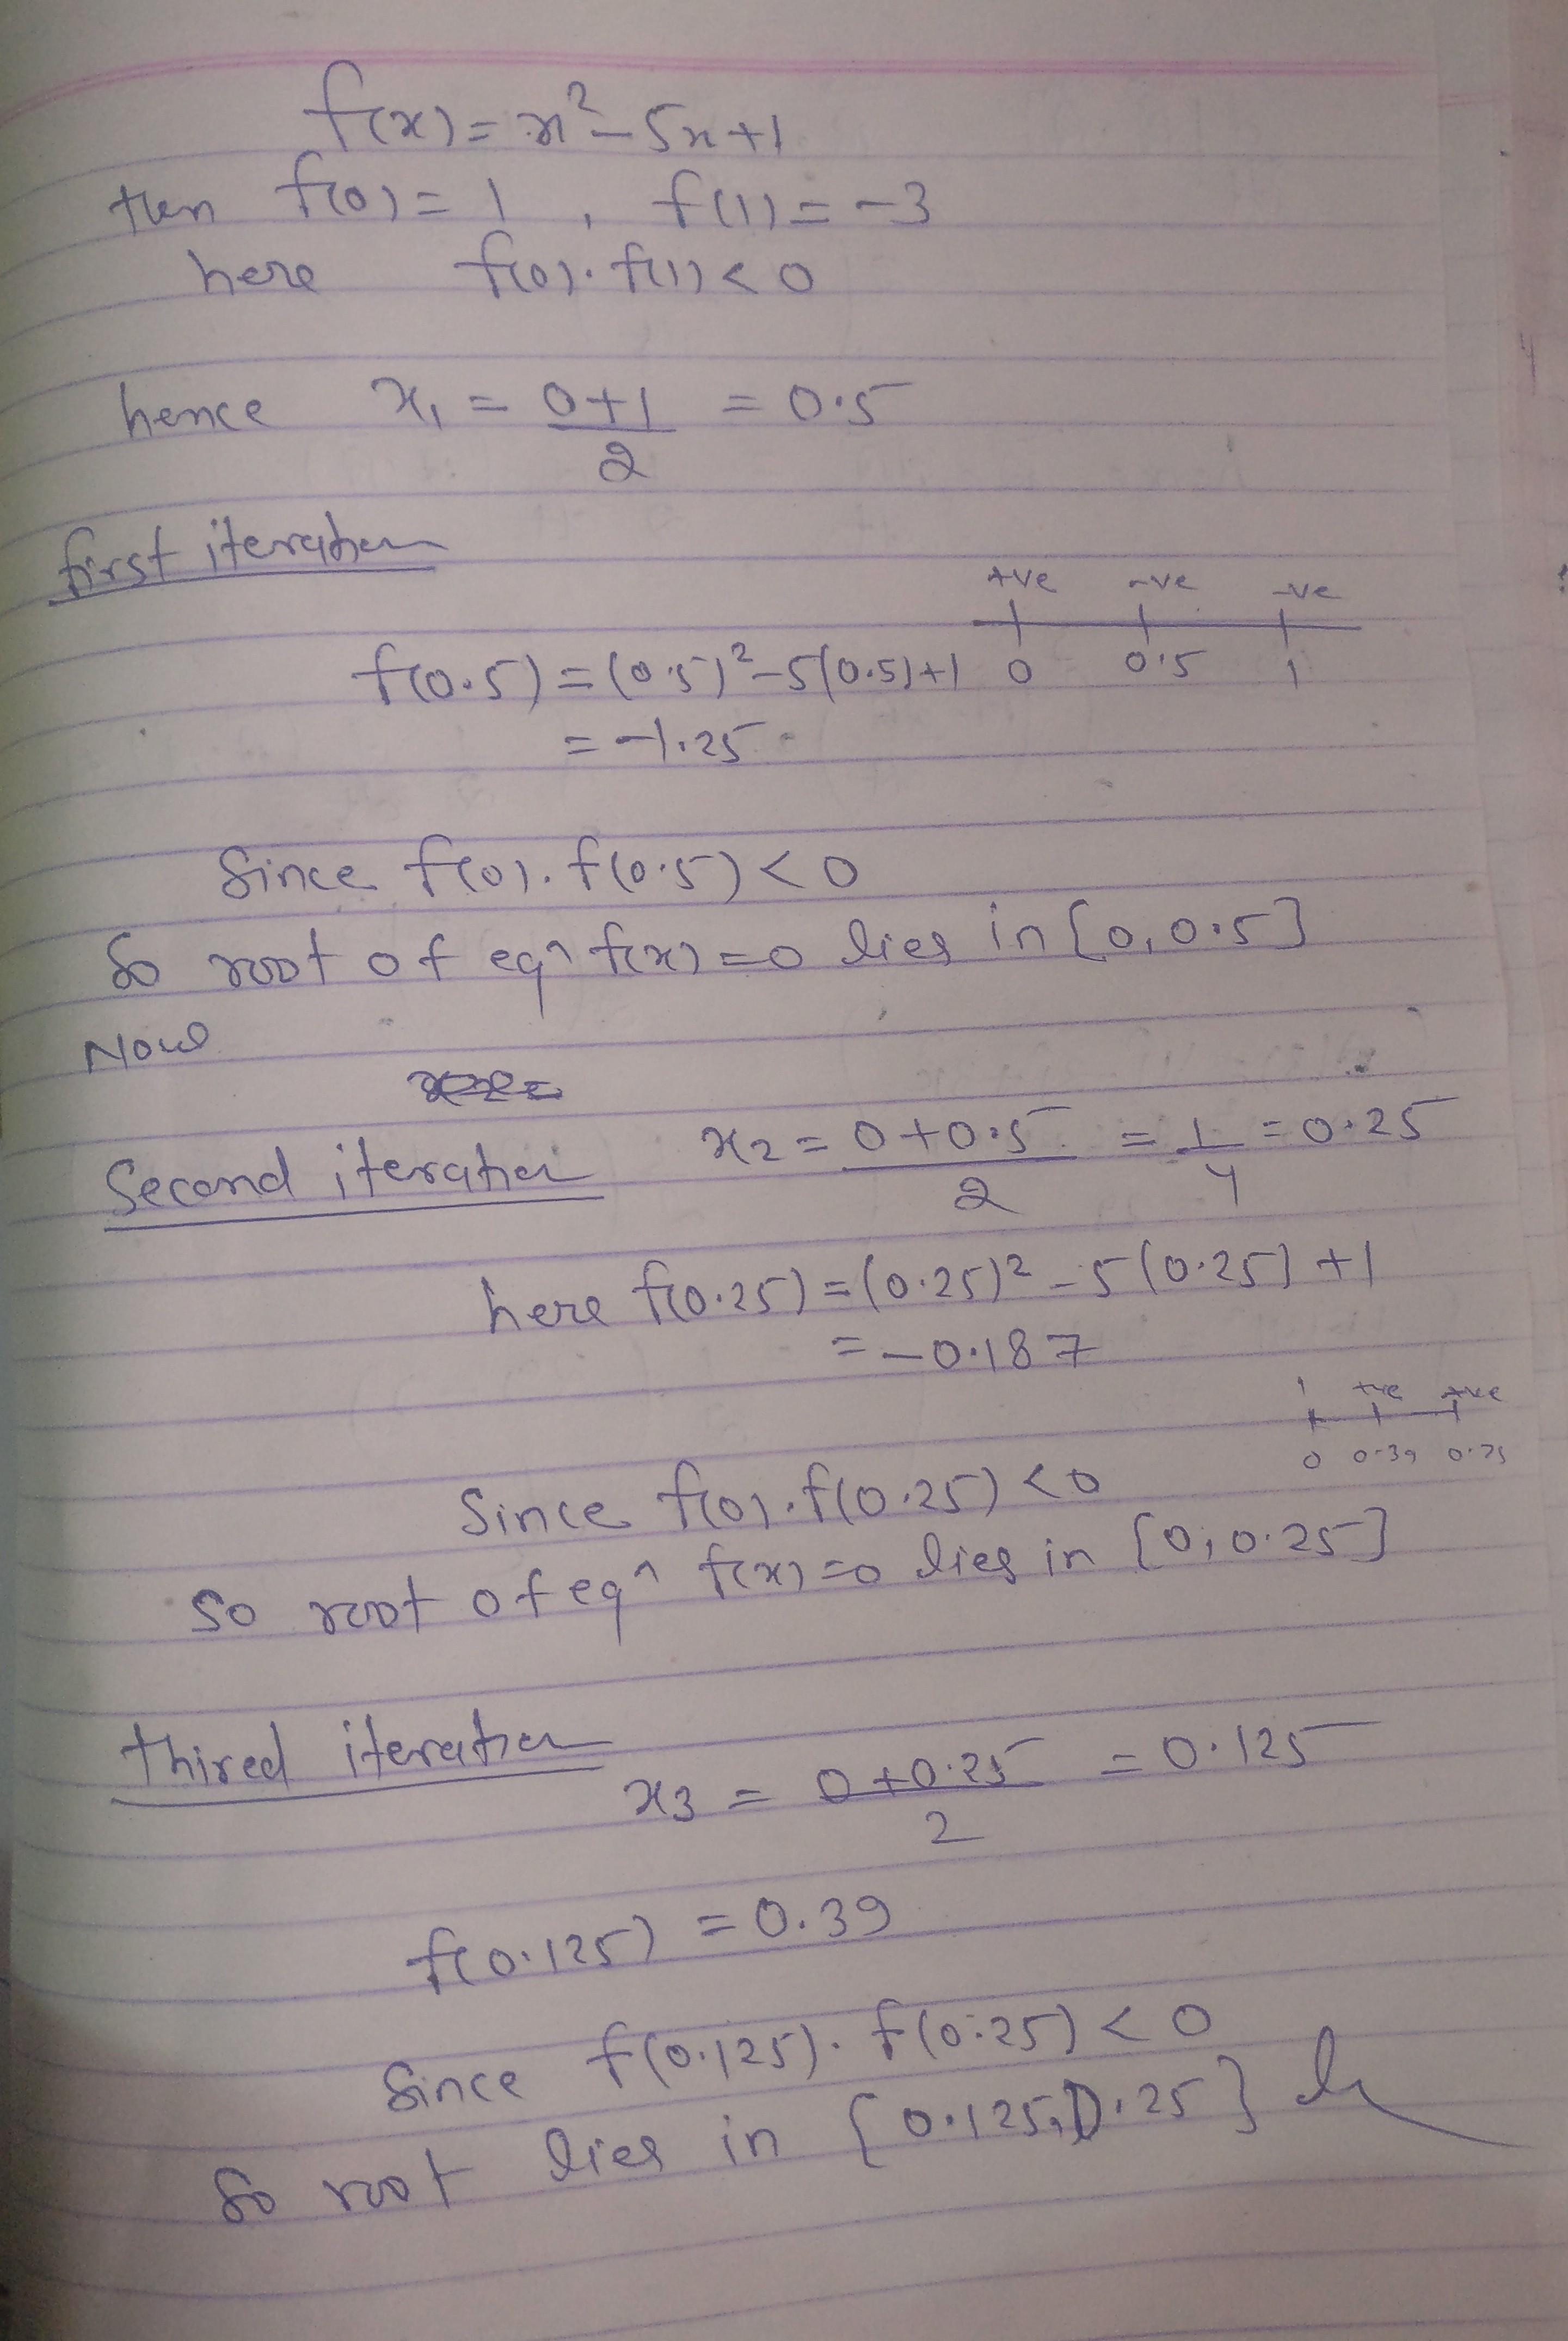 f(x) = x² - 5x + 1
then f(0) = 1 , f(1) = -3
here f(0). f(1) < 0
hence x₁ = 0+1 = 0.5
2
first iteration
+ve -ve -ve
f(0.5) = (0.5)² - 5(0.5) + 1 0 0.5 1
= -1.25
Since f(0). f(0.5) < 0
So root of eqⁿ f(x) = 0 lies in [0, 0.5]
Now
Second iteration x₂ = 0 + 0.5 = 1 = 0.25
2 4
here f(0.25) = (0.25)² - 5(0.25) + 1
= -0.187
+ve +ve
0 0.39 0.25
Since f(0). f(0.25) < 0
So root of eqⁿ f(x) = 0 lies in [0, 0.25]
thired iteration
x₃ = 0 + 0.25 = 0.125
2
f(0.125) = 0.39
Since f(0.125). f(0.25) < 0
So root lies in [0.125, 0.25]